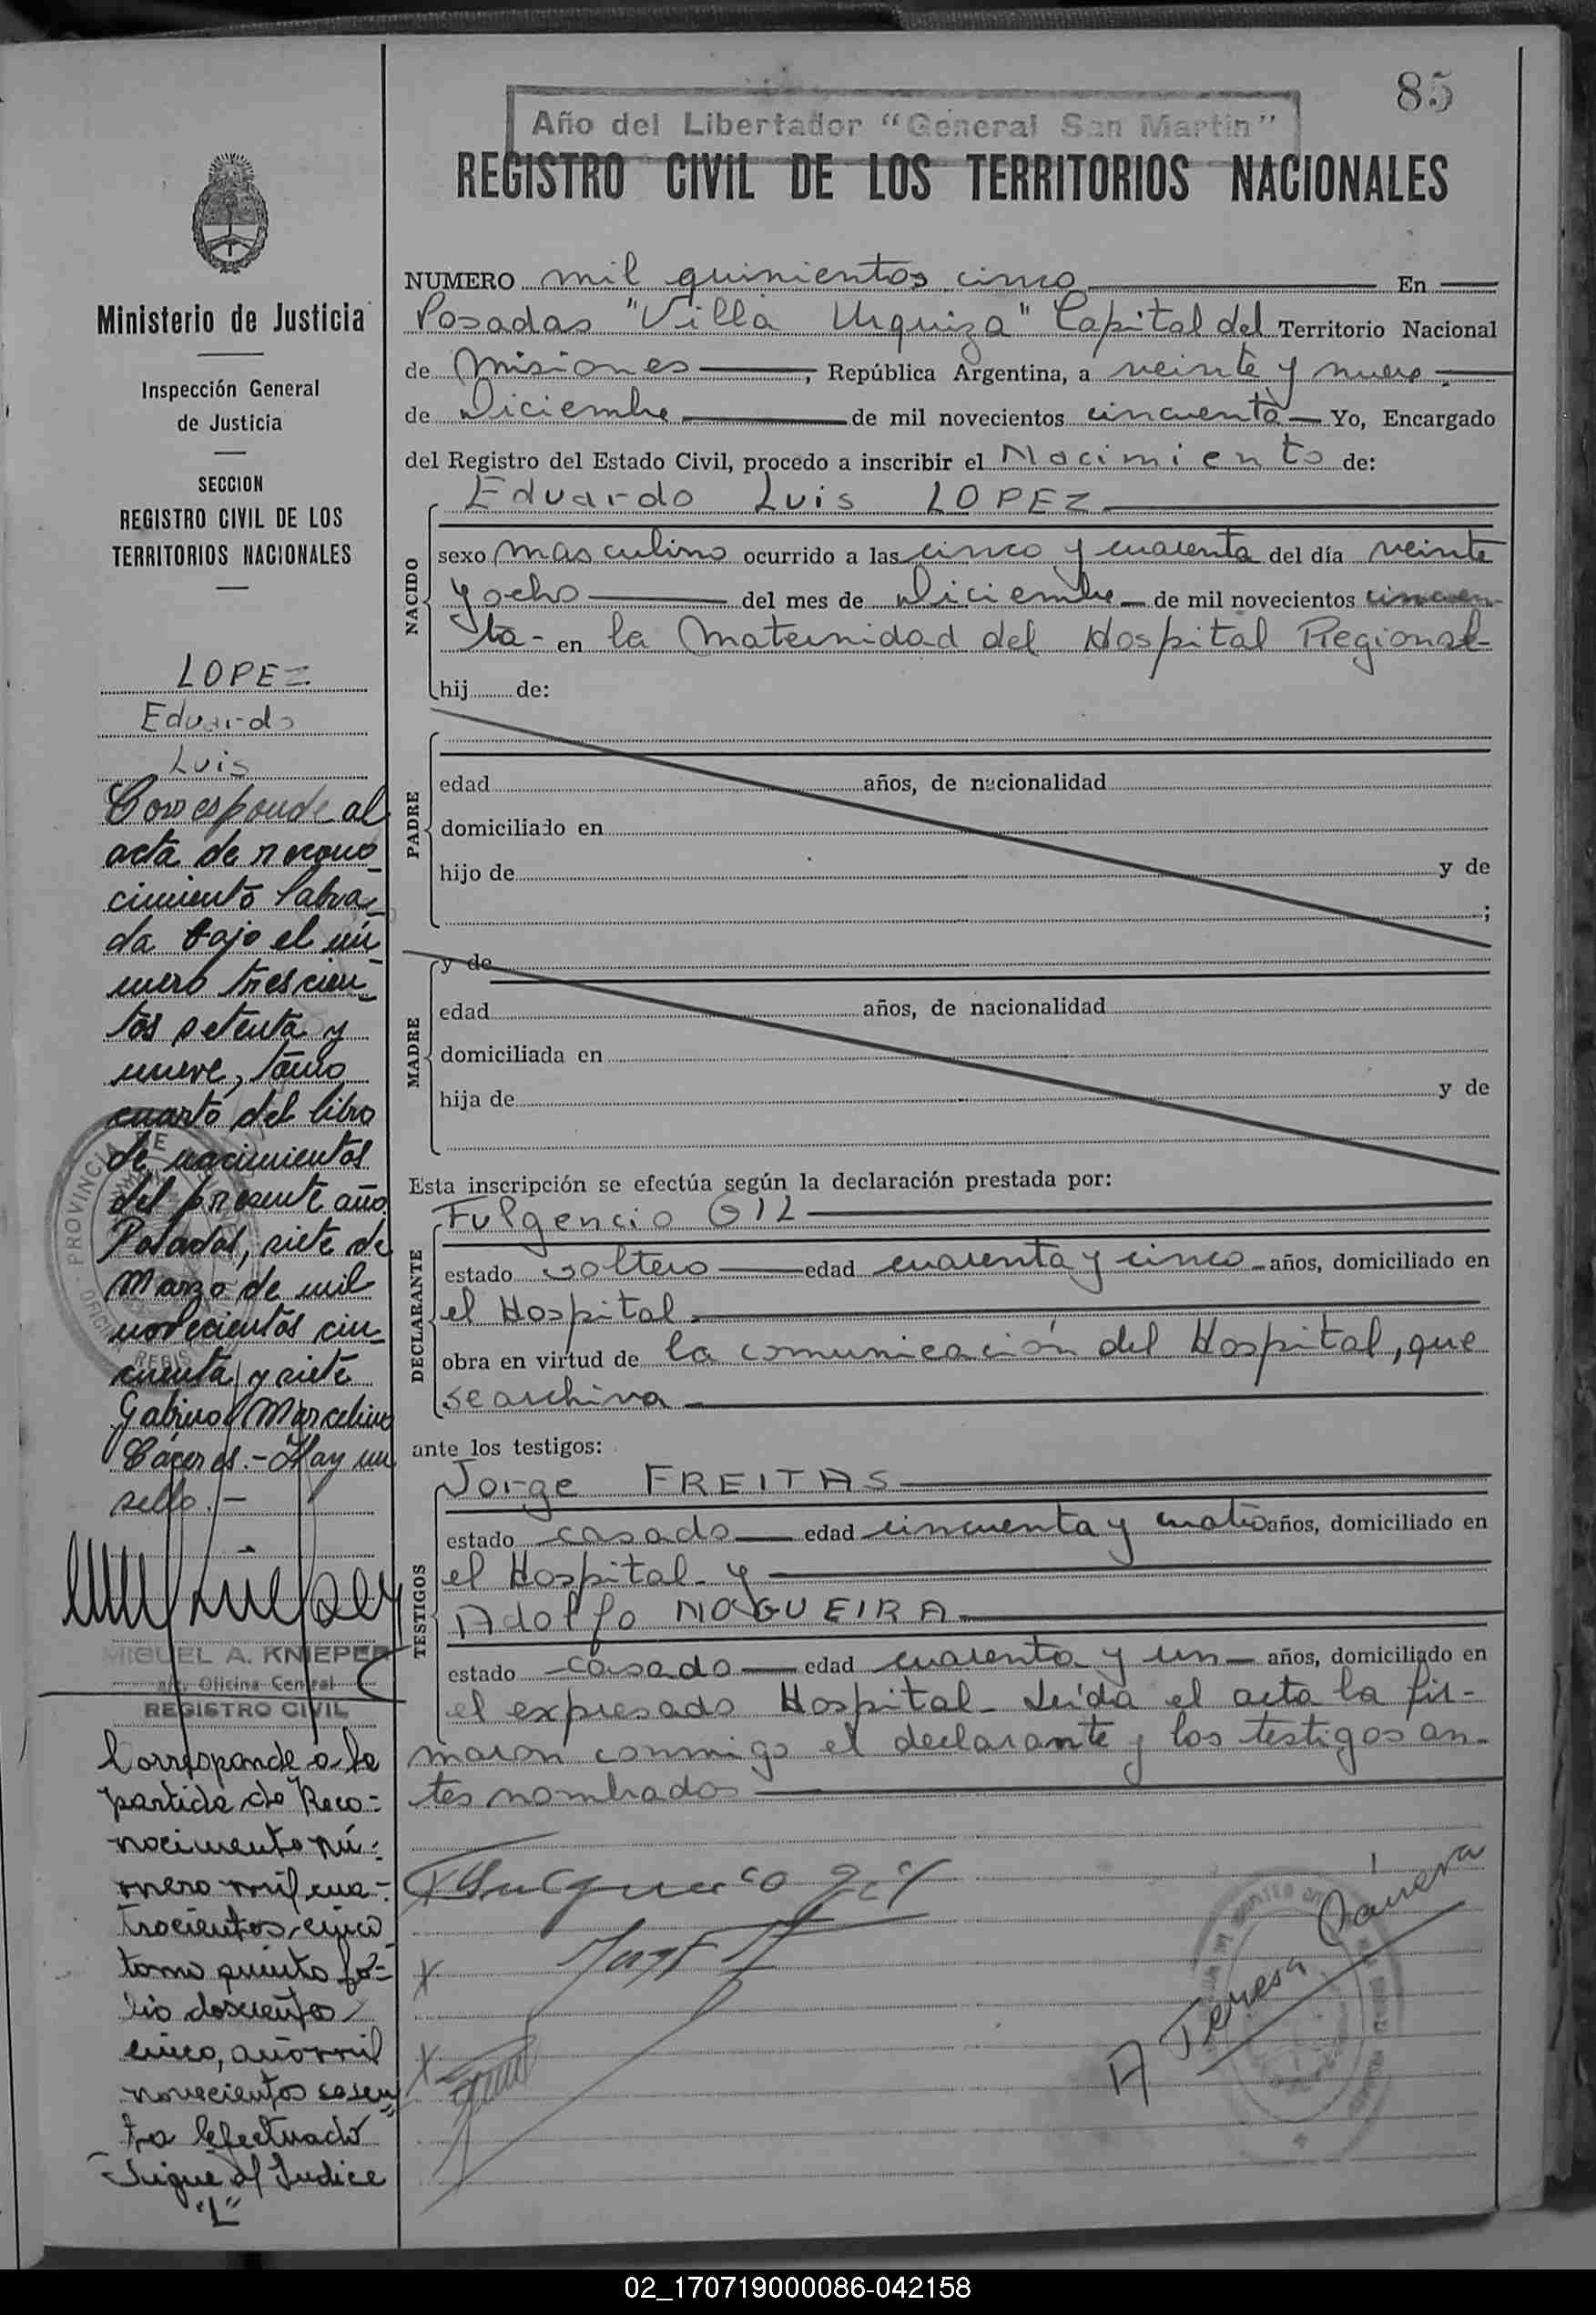 85
Año del Libertador "General San Martín"
REGISTRO CIVIL DE LOS TERRITORIOS NACIONALES
Ministerio de Justicia
Inspección General
de Justicia
SECCION
REGISTRO CIVIL DE LOS
TERRITORIOS NACIONALES
LOPEZ
Eduardo
Luis
Corresponde al
acta de recono
cimiento labra
da bajo el nú
mero trescien
tos setenta y
nueve, tomo
cuarto del libro
de nacimientos
del presente año
Posadas, siete de
Marzo de mil
novecientos cin
cuenta y siete
Gabino Marcelino
Cáceres.- Hay un
sello.-
MIGUEL A. KNIEPER
Oficina Central
REGISTRO CIVIL
Corresponde a la
partida de Reco-
nocimiento nú-
mero mil cua-
trocientos cinco
tomo quinto fo-
lio doscientos
cinco, año mil
novecientos sesen
ta Efectuado
Sigue al Indice
"L"
NUMERO mil quinientos cinco En
Posadas "Villa Urquiza" Capital del Territorio Nacional
de Misiones, República Argentina, a veinte y nueve
de Diciembre de mil novecientos cincuenta Yo, Encargado
del Registro del Estado Civil, procedo a inscribir el Nacimiento de:
Eduardo Luis LOPEZ
NACIDO
sexo masculino ocurrido a las cinco y cuarenta del día veinte
y ocho del mes de Diciembre de mil novecientos cincuen-
ta- en la Maternidad del Hospital Regional-
hij de:
PADRE
edad años, de nacionalidad
domiciliado en
hijo de y de
;
MADRE
y de
edad años, de nacionalidad
domiciliada en
hija de y de
Esta inscripción se efectúa según la declaración prestada por:
DECLARANTE
Fulgencio GIL
estado soltero edad cuarenta y cinco años, domiciliado en
el Hospital
obra en virtud de la comunicación del Hospital, que
se archiva
ante los testigos:
TESTIGOS
Jorge FREITAS
estado casado edad cincuenta y cuatro años, domiciliado en
el Hospital- y
Adolfo NOGUEIRA
estado casado edad cuarenta y un años, domiciliado en
el expresado Hospital- Leída el acta la fir-
maron conmigo el declarante y los testigos an-
tes nombrados
Fulgencio Gil
A Teresa
02_170719000086-042158